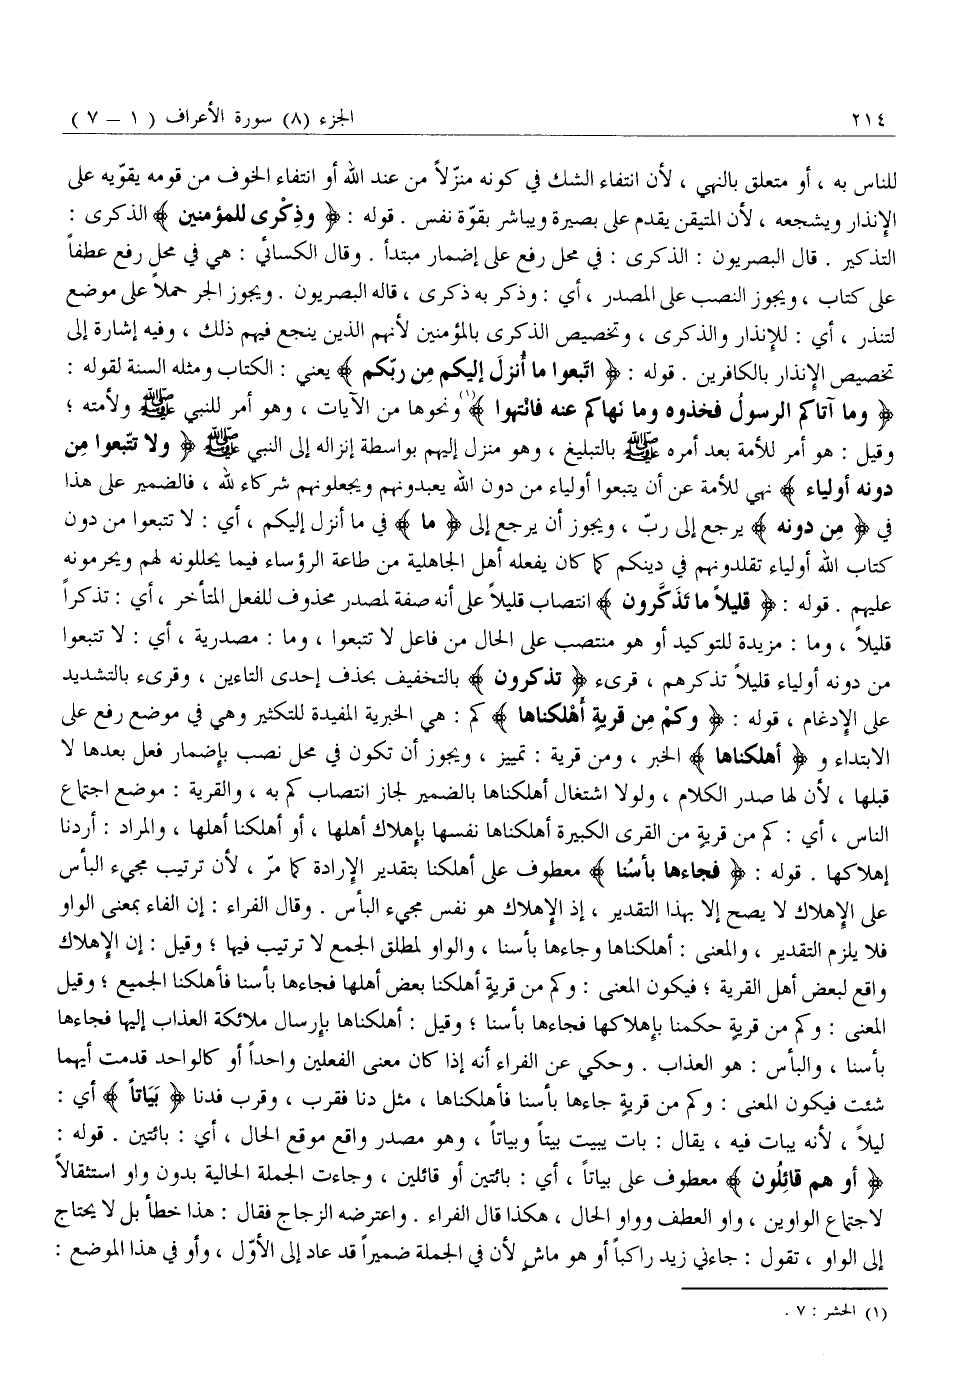 ٢١٤ الجزء (٨) سورة الأعراف ( ١ – ٧ )
للناس به ، أو متعلق بالنهي ، لأن انتفاء الشك في كونه منزّلاً من عند الله أو انتفاء الخوف من قومه يقوّيه على
الإنذار ويشجعه ، لأن المتيقن يقدم على بصيرة ويباشر بقوّة نفس . قوله : ﴿ وذِكْرى للمؤمنين ﴾ الذكرى :
التذكير . قال البصريون : الذكرى : في محل رفع على إضمار مبتدأ . وقال الكسائي : هي في محل رفع عطفاً
على كتاب ، ويجوز النصب على المصدر ، أي : وذكر به ذكرى ، قاله البصريون . ويجوز الجر حملاً على موضع
لتنذر ، أي : للإنذار والذكرى ، وتخصيص الذكرى بالمؤمنين لأنهم الذين ينجع فيهم ذلك ، وفيه إشارة إلى
تخصيص الإنذار بالكافرين . قوله : ﴿ اتّبعوا ما أُنزلَ إليكم مِن ربّكم ﴾ يعني : الكتاب ومثله السنة لقوله :
﴿ وما آتاكم الرسولُ فخذوه وما نَهاكم عنه فانْتهوا ﴾(١) ونحوها من الآيات ، وهو أمر للنبي ﷺ ولأمته ؛
وقيل : هو أمر للأمة بعد أمره ﷺ بالتبليغ ، وهو منزل إليهم بواسطة إنزاله إلى النبي ﷺ ﴿ ولا تتّبعوا مِن
دونه أولياء ﴾ نهي للأمة عن أن يتبعوا أولياء من دون الله يعبدونهم ويجعلونهم شركاء لله ، فالضمير على هذا
في ﴿ مِن دونه ﴾ يرجع إلى ربّ ، ويجوز أن يرجع إلى ﴿ ما ﴾ في ما أنزل إليكم ، أي : لا تتبعوا من دون
كتاب الله أولياء تقلدونهم في دينكم كما كان يفعله أهل الجاهلية من طاعة الرؤساء فيما يحللونه لهم ويحرمونه
عليهم . قوله : ﴿ قليلاً ما تَذَكَّرون ﴾ انتصاب قليلاً على أنه صفة لمصدر محذوف للفعل المتأخر ، أي : تذكراً
قليلاً ، وما : مزيدة للتوكيد أو هو منتصب على الحال من فاعل لا تتبعوا ، وما : مصدرية ، أي : لا تتبعوا
من دونه أولياء قليلاً تذكرهم ، قرىء ﴿ تذكرون ﴾ بالتخفيف بحذف إحدى التاءين ، وقرىء بالتشديد
على الإدغام ، قوله : ﴿ وكمْ مِن قريةٍ أهْلكناها ﴾ كم : هي الخبرية المفيدة للتكثير وهي في موضع رفع على
الابتداء و ﴿ أهلكناها ﴾ الخبر ، ومن قرية : تمييز ، ويجوز أن تكون في محل نصب بإضمار فعل بعدها لا
قبلها ، لأن لها صدر الكلام ، ولولا اشتغال أهلكناها بالضمير لجاز انتصاب كم به ، والقرية : موضع اجتماع
الناس ، أي : كم من قريةٍ من القرى الكبيرة أهلكناها نفسها بإهلاك أهلها ، أو أهلكنا أهلها ، والمراد : أردنا
إهلاكها . قوله : ﴿ فجاءها بأسُنا ﴾ معطوف على أهلكنا بتقدير الإرادة كما مرّ ، لأن ترتيب مجيء البأس
على الإهلاك لا يصح إلا بهذا التقدير ، إذ الإهلاك هو نفس مجيء البأس . وقال الفراء : إن الفاء بمعنى الواو
فلا يلزم التقدير ، والمعنى : أهلكناها وجاءها بأسنا ، والواو لمطلق الجمع لا ترتيب فيها ؛ وقيل : إن الإهلاك
واقع لبعض أهل القرية ؛ فيكون المعنى : وكم من قريةٍ أهلكنا بعض أهلها فجاءها بأسنا فأهلكنا الجميع ؛ وقيل
المعنى : وكم من قريةٍ حكمنا بإهلاكها فجاءها بأسنا ؛ وقيل : أهلكناها بإرسال ملائكة العذاب إليها فجاءها
بأسنا ، والبأس : هو العذاب . وحكي عن الفراء أنه إذا كان معنى الفعلين واحداً أو كالواحد قدمت أيهما
شئت فيكون المعنى : وكم من قريةٍ جاءها بأسنا فأهلكناها ، مثل دنا فقرب ، وقرب فدنا ﴿ بَيَاتاً ﴾ أي :
ليلاً ، لأنه يبات فيه ، يقال : بات يبيت بيتاً وبياتاً ، وهو مصدر واقع موقع الحال ، أي : بائتين . قوله :
﴿ أو هم قائِلُون ﴾ معطوف على بياتاً ، أي : بائتين أو قائلين ، وجاءت الجملة الحالية بدون واو استثقالاً
لاجتماع الواوين ، واو العطف وواو الحال ، هكذا قال الفراء . واعترضه الزجاج فقال : هذا خطأ بل لا يحتاج
إلى الواو ، تقول : جاءني زيد راكباً أو هو ماشٍ لأن في الجملة ضميراً قد عاد إلى الأوّل ، وأو في هذا الموضع :
(١) الحشر : ٧ .